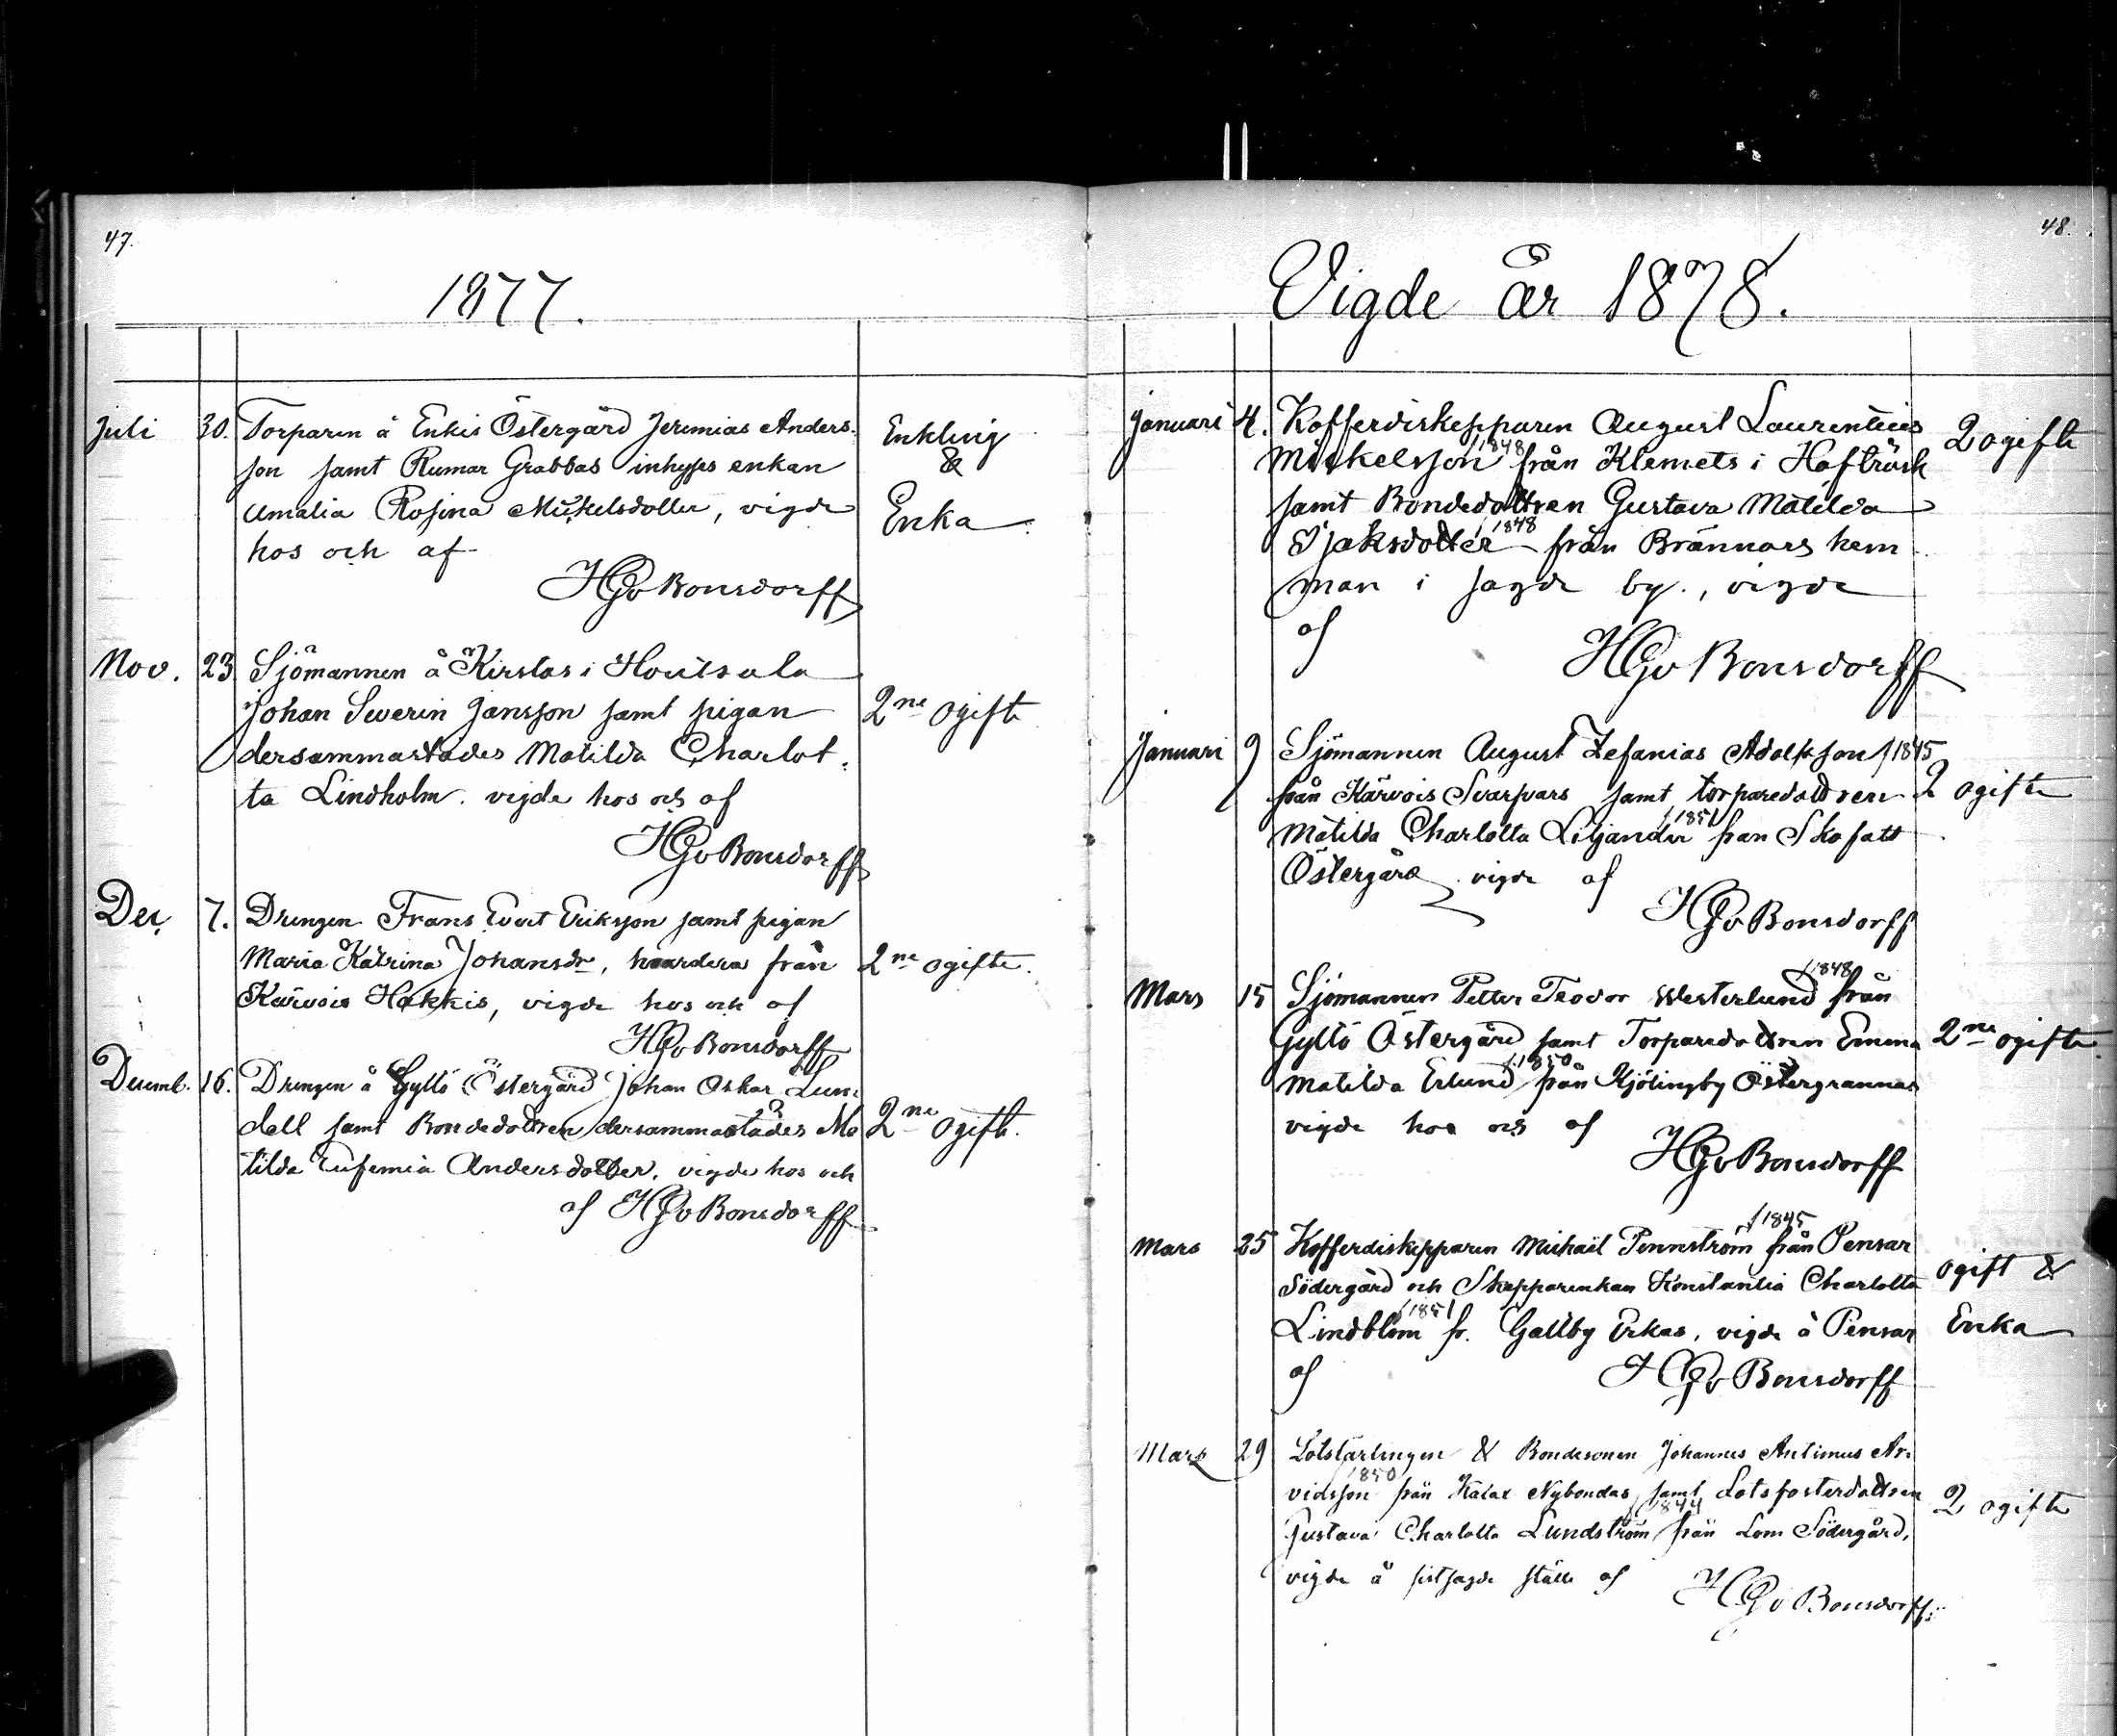 47.
1877.
Juli 30. Torparen å Enkis Östergård Jeremias Anders-
son samt Rumar Grabbas inhyses enkan
Amalia Rosina Mickelsdotter, vigde
hos och af
HGvBonsdorff
Enkling
&
Enka
Nov. 23 Sjömannen å Kirstas i Houtsala
Johan Swerin Jansson samt pigan
dersammastädes Matilda Charlot-
ta Lindholm. vigde hos och af
HGvBonsdorff
2ne ogifte
Dec. 7. Drengen Frans Evert Eriksson samt pigan
Maria Katrina Johansdr, hvardera från
Kärvois Hakkis, vigde hos och af
HGvBonsdorff
2ne ogifte.
Decemb. 16. Drengen å Gyttö Östergård Johan Oskar Lun-
dell samt Bondedottren dersammastädes Ma
tilda Eufemia Andersdotter. vigde hos och
af HGvBonsdorff
2ne ogifte.
48.
Vigde år 1878.
Januari 4. Kofferdiskepparen August Laurentius
Mickelsson /1848 från Klemets i Hafträsk
samt Bondedottren Gustava Matilda
Isaksdotter /1848 från Brännars hem
man i sagde by., vigde
af
HGvBonsdorff
2 ogifte
Januari 9 Sjömannen August Zefanias Adolfsson /1845
från Kärvois Svarfvars samt torparedottren
Matilda Charlotta Liljander /1851 från Skofatt
Östergård vigde af
HGvBonsdorff
2 ogifte
Mars 15 Sjömannen Petter Teodor Westerlund /1848 från
Gyttö Östergård samt Torparedottren Emma
Matilda Erlund /1850 från Kjölingby Östergrannas
vigde hos och af
HGvBonsdorff
2ne ogifte.
Mars 25 Kofferdiskepparen Michaël Pennström /1845 från Pensar
Södergård och Skepparenkan Konstantia Charlotta
Lindblom /1851 fr. Gallby Erkas, vigde å Pensar
af
HGvBonsdorff
ogift &
Enka
Mars 29 Lotslärlingen & Bondesonen Johannes Antimus Ar-
vidsson /1850 från Kälax Nybondas, samt Lotsfosterdottren
Gustava Charlotta Lundström /1844 från Lom Södergård,
vigde å sistsagde ställe af HGvBonsdorff.
2 ogifte